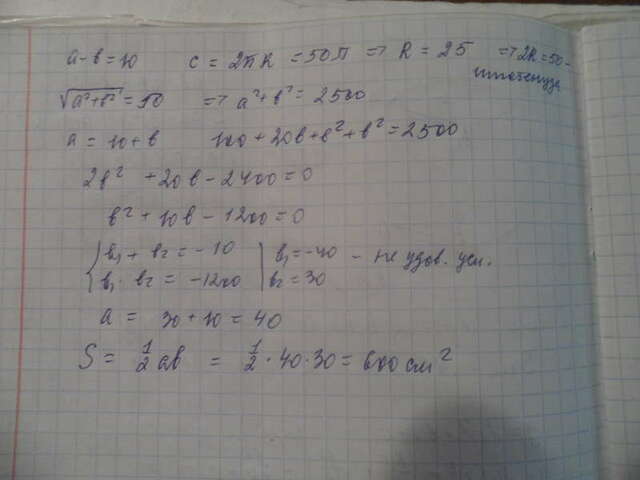 a - b = 10   C = 2πR = 50π => R = 25 => 2R = 50 -
гипотенуза
√(a²+b²) = 50 => a² + b² = 2500
a = 10 + b   100 + 20b + b² + b² = 2500
2b² + 20b - 2400 = 0
b² + 10b - 1200 = 0
{ b₁ + b₂ = -10 | b₁ = -40 - не удов. усл.
{ b₁ · b₂ = -1200 | b₂ = 30
a = 30 + 10 = 40
S = 1/2 ab = 1/2 · 40 · 30 = 600 см²